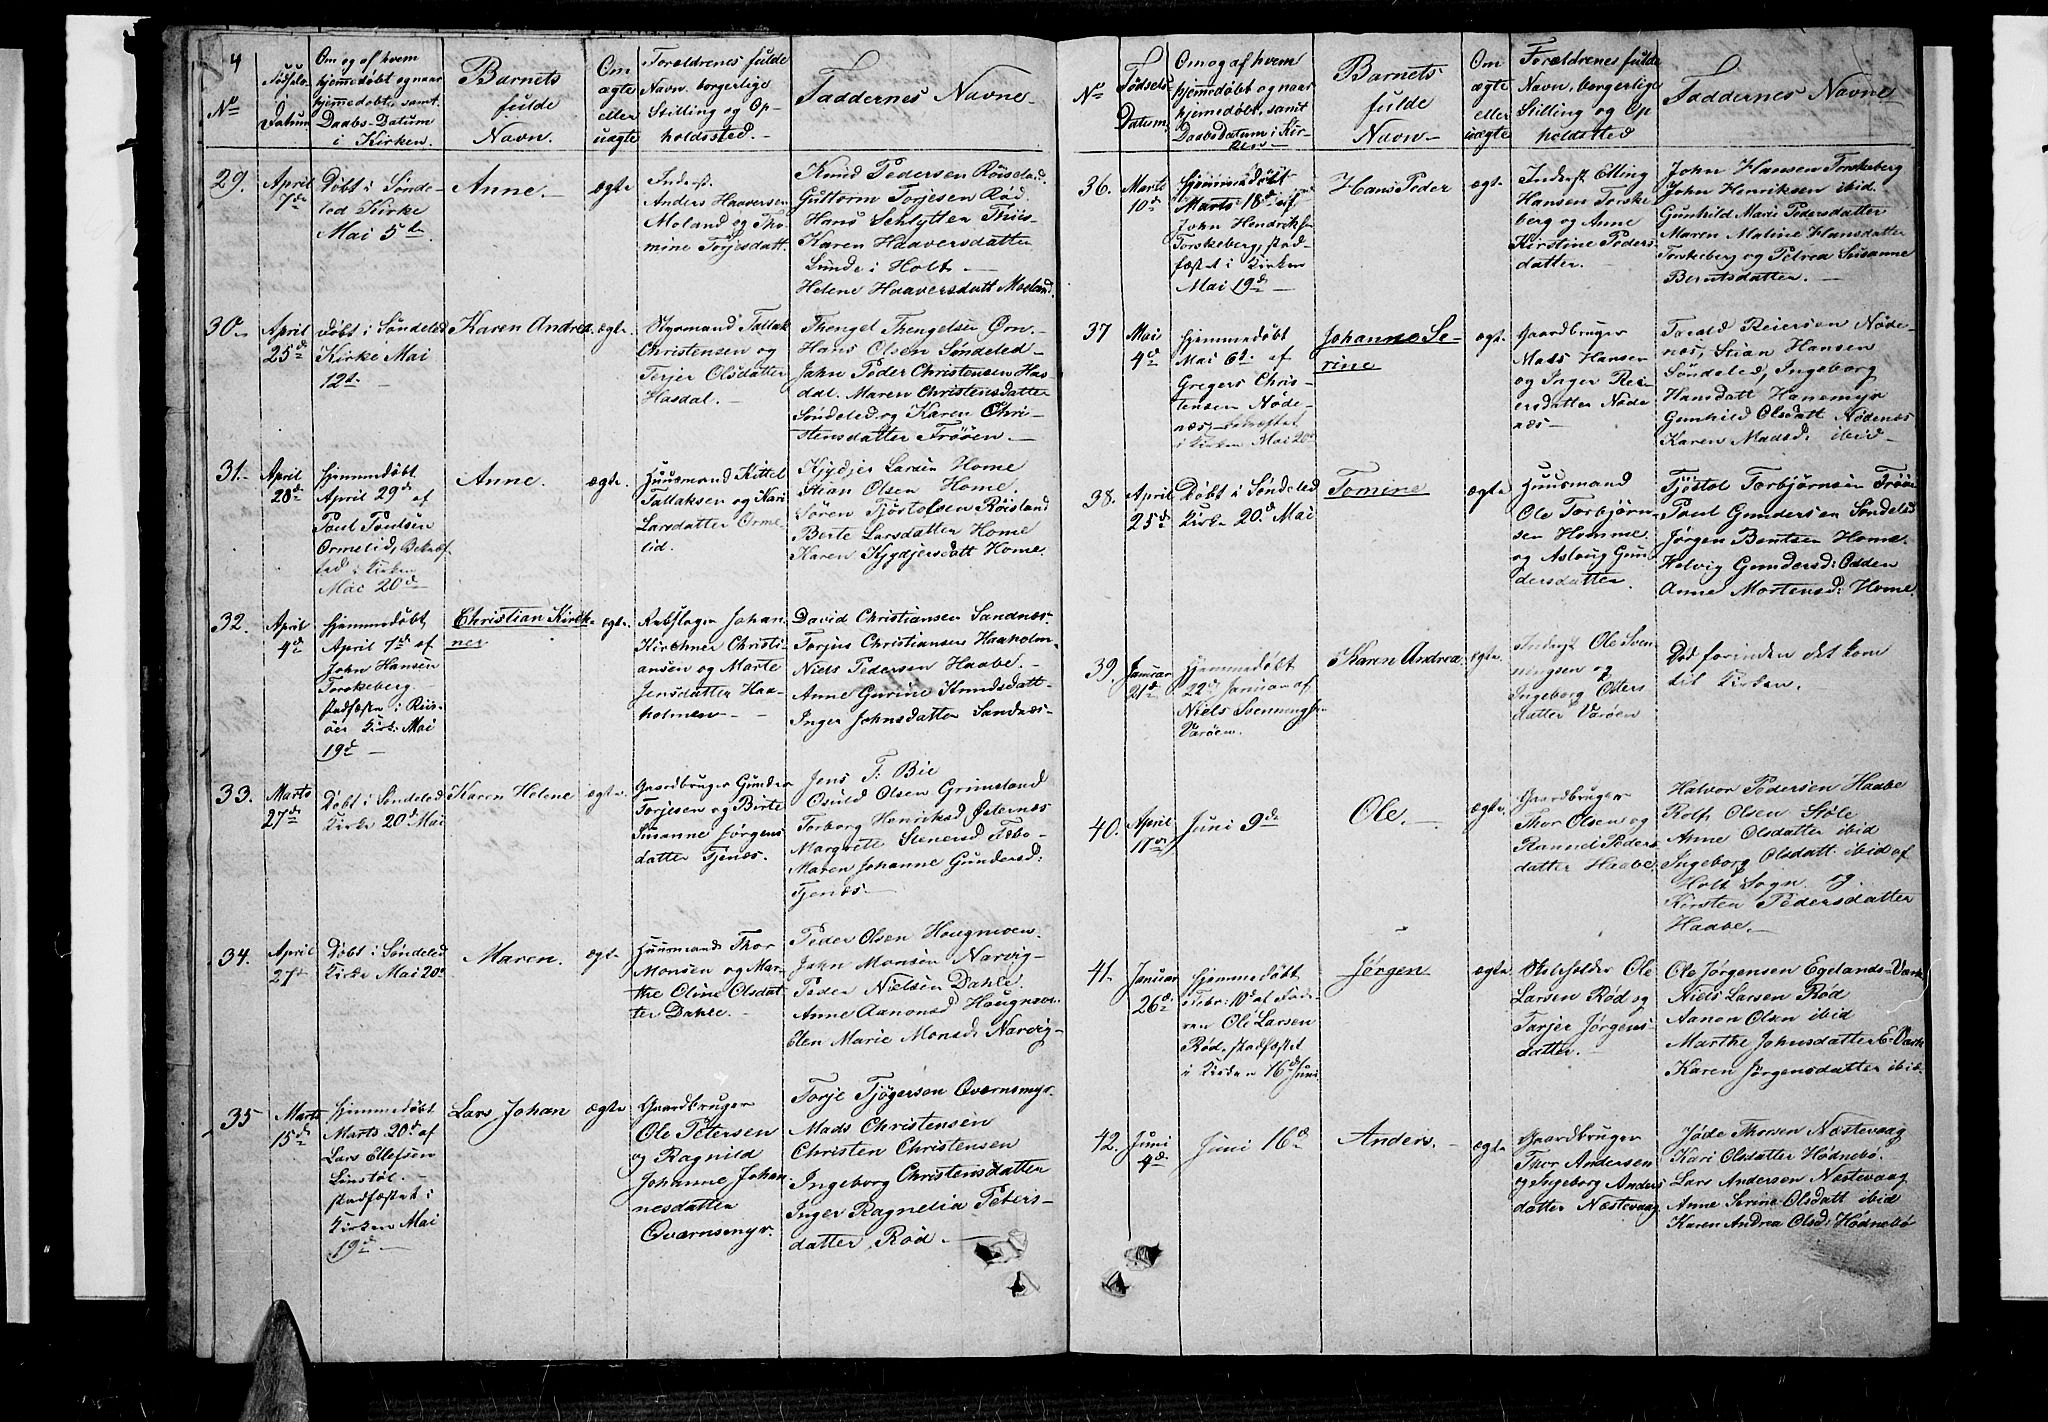 4
No
Fødsels-
Datum
Om og af hvem
hjemmedøbt og naar
hjemmedøbt, samt
Daabs-Datum
i Kirken.
Barnets
fulde
Navn.
Om
ægte
eller
uægte
Forældrenes fulde
Navn, borgerlige
Stilling og Op-
holdssted.
Faddernes Navne
29.
April
7de
Døbt i Sønde-
led Kirke
Mai 5te
Anne.
ægte
Inderst.
Anders Haaversen
Moland og Tho-
mine Torjesdatt.
Knud Pedersen
Guttorm Torjesen Rød.
Hans Schlytter
Karen Haaversdatter
Sunde i Holt
Helene Haaversdatt Moland.
30
April
25de
Døbt i Søndeled
Kirke Mai
12te
Karen Andrea
ægte.
Styrmand Tallak
Christensen og
Terjer Olsdatter
Hasdal.
Thengel Thengelsen Ørn.
Hans Olsen Søndeled
John Peder Christensen Has-
dal. Maren Christensdatter
Søndeled og Karen Chri-
stensdatter Trøen.
31.
April
28de
hjemmedøbt
April 29de af
Poul Poulsen
Ormelid,
i Kirken
Mai 20de
Anne.
ægte.
Huusmand Kittel
Tallaksen og Kari
Larsdatter Orme-
lid.
Kjydjer Larsen Home
Stian Olsen Home.
Søren Tjøstolsen Røisland
Berte Larsdatter Home
Karen Kjydjersdatt Home.
32.
April
4de
hjemmedøbt
April 7de af
John Hansen
Torskeberg.
stadfæstet i Riis-
øer Kirke Mai
19de
Christian Kirch-
ner
ægte.
Johan
Kirchner Christi-
ansen og Marte
Jensdatter Haa-
holmen
David Christiansen Sandnæs
Torjus Christiansen Haaholm
Niels Pedersen Haabe.
Anne Gurine Knudsdatt
Inger Johnsdatter Sandnæs
33.
Marts
27de
Døbt i Søndeled
Kirke 20de Mai
Karen Helene
ægte.
Gaardbruger Gunder
Torjesen og Birte
Susanne Jørgens-
datter Tjenæs.
Jens T: Bie
Osuld Olsen Grimsland
Torborg Henriksd Østernæs
Margrete Stenersd Febo
Maren Johanne Gundersd:
Tjenæs
34.
April
27de
Døbt i Søndeled
Kirke Mai 20de
Maren.
ægte
Huusmand Thor
Monsen og Mar-
the Oline Olsdat-
ter Dahle.
Peder Olsen Hougmoen.
John Monsen Narvig
Peder Nielsen Dahle.
Anne Aanonsd Hougmoen
Elen Marie Monsd: Narvig
35
Marts
15de
hjemmedøbt
Marts 20de af
Lars Ellefsen
Linstøl.
stadfæstet i
Kirken Mai
19de
Lars Johan
ægte
Gaardbruger
Ole Petersen
og Ragnild
Johanne Johan-
nesdatter
Qvernsmyr.
Torje Tjøgersen Qvernsmyr.
Mads Christensen
Christen Christensen
Ingeborg Christensdatter
Inger Ragnelia Peters-
datter Rød
No
Fødsels-
Datum.
Om og af hvem
hjemmedøbt og naar
hjemmedøbt, samt
Daabsdatum i Kir-
ken
Barnets
fulde
Navn
Om
ægte
eller
uægte
Forældrenes fulde
Navn, borgerlige
Stilling og Op-
holdsted
Faddernes Navne
36.
Marts
10de
hjemmedøbt
Marts 18de af
John Hendriksen
Torskeberg, stad-
fæstet i Kirken
Mai 19de
Hans Peder
ægte
Inderst Elling
Hansen Torske-
berg og Anne
Kirstine Peders-
datter.
John Hansen Torskeberg
John Henriksen ibid.
Gunhild Marie Pedersdatter
Maren Maline Hansdatter
Torskeberg og Petrea Susanne
Berntsdatter.
37
Mai
4de
hjemmedøbt
Mai 6te af
Gregers Chris-
tensen Nøde-
næs,
i Kirken Mai 20de
Johanne Se-
rine
ægte.
Gaardbruger
Mads Hansen
og Inger Rei-
ersdatter Nøde-
næs
Reiersen Nøde-
næs, Stian Hansen
Søndeled, Ingeborg
Hansdatt Hanemyr
Gunhild Olsdatt Nødenæs
Karen Madsd: ibid
38.
April
25de
Døbt i Søndeled
Kirke 20de Mai
Tomine
ægte
Huusmand
Ole Torbjørn-
sen Homme
og Asloug Gun-
dersdatter.
Tjøstol Torbjørnsen
Poul Gundersen Søndeled
Jørgen Bentsen Home.
Helvig Gundersd:
Anne Mortensd: Home.
39.
Januar
21de
Hjemmedøbt
22de Januar af
Niels Svenningsen
Varøen.
Karen Andrea
ægte.
Inderst Ole Sven-
ningsen og
Ingeborg
datter Varøen
Død forinden det kom
til Kirken.
40.
April
17de
Juni 9de
Ole.
ægte.
Gaardbruger
Thor Olsen og
Rannei Peders-
datter Haabe
Halvor Pedersen Haabe
Rolf Olsen Støle
Anne Olsdatter ibid
Ingeborg Olsdatt. ibid af
Holt Sogn. og
Kirsten Pedersdatter
Haabe.
41.
Januar
26de
Hjemmedøbt
Febr: 10de af Fade-
ren Ole Larsen
Rød, stadfæstet
i Kirken 16de Juni
Jørgen
ægte
Ole
Larsen Rød og
Tarjer Jørgens-
datter.
Ole Jørgensen Egelands-Værk
Niels Larsen Rød
Aanon Olsen ibid
Marthe Johnsdatter E-Værk
Karen Jørgensdatter ibid.
42.
Juni
4de
Juni 16de
Anders.
ægte
Gaardbruger
Thor Andersen
og Ingeborg Anders-
datter Næstevaag
Jøde Thorsen Næstevaag
Kari Olsdatter Hødnebø.
Lars Andersen Næstevaag
Anne Serine Olsdatt ibid
Karen Andrea Olsd: Hødnebø